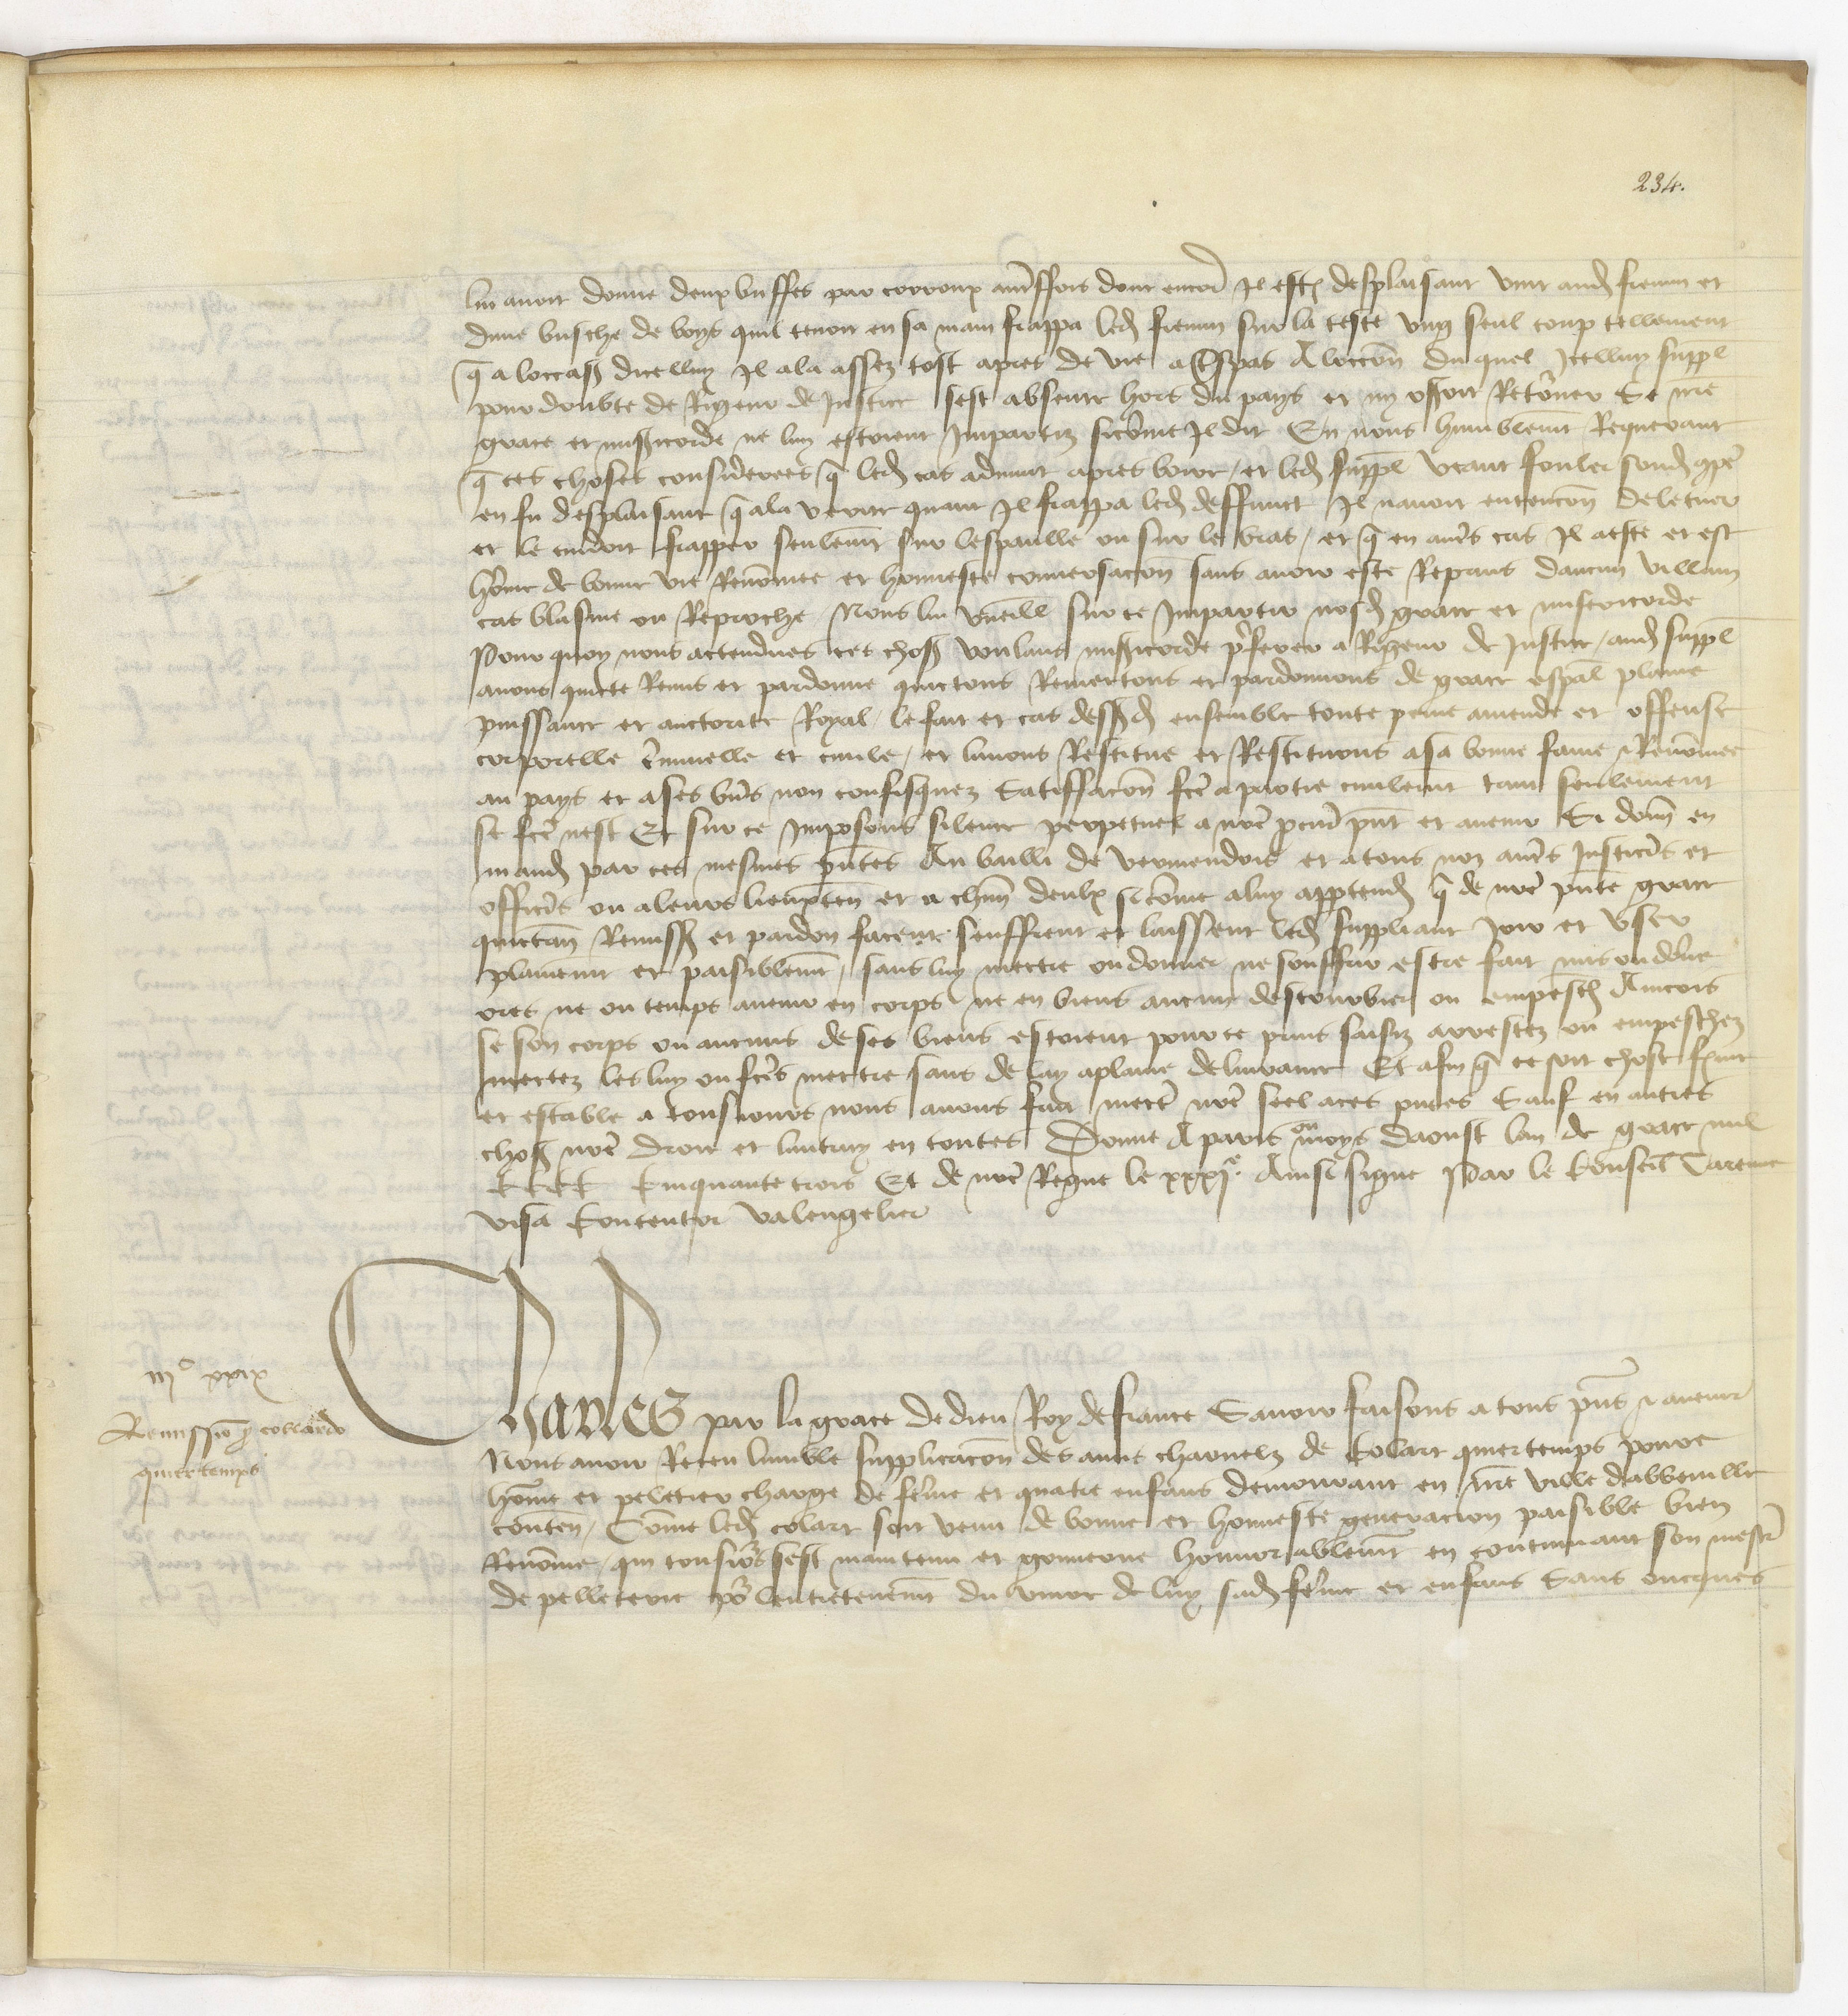 234.
lui avoit donne deux buffes par corroux autreffois dont encores Il est desplaisant vint aud fremin et
dune busche de boys quil tenoit en sa main frappa led fremin sur la teste ung seul coup tellement
q a loccasion dicelluy Il ala assez tost apres de vie a trespas A loccon du quel Icelluy suppl
pour doubte de Rigeur de Justice sest absente hors du pays et ny oseroit Retourner Se nre
grace et misericorde ne luy estoient Impartiz sicomme Il dit En nous humblemt Requerant
q ces choses considerees q led cas advint apres boire / et led suppl veant fouler sond pere
en fu desplaisant q a la verite quant Il frappa led deffunct Il navoit entencon de le tuer
et le cuidoit frapper seulemt sur lespaulle ou sur le bras / et q en autres cas Il a este et est
home de bonne vie Renommee et honneste conversacion sans avoir este Reprins daucun villain
cas blasme ou Reproche Nous lui vueill sur ce Impartir nosd grace et misericorde
Pour quoy nous actendues ces choses voulans misericorde preferer a Rigeur de Justice / aud suppl
avons quicte Remis et pardonne quictons Remectons et pardonnons de grace espal plaine
puissance et auctorite Royal le fait et cas dessusd ensemble toute peine amende et offense
corporelle criminelle et civile / et lavons Restitue et Restituons a sa bonne fame & Renommee
au pays et a ses biens non confisquez Satisfacon fce a partie civilemt tant seulement
se fce nest Et sur ce Imposons silence perpetuel a nre procur pnt et avenir Si donn en
mand par ces mesmes pntes Au bailli de vermendois et a tous noz autres Justiciers et
officiers ou a leurs lieuxten et a chun deulx si come a luy appartend q de nre pnte grace
quictan Remiss et pardon facent seuffrent et laissent led suppliant Joir et User
plainemt et paisiblemt sans luy mectre ou donner ne souffrir estre fait mis ou donne
ores ne ou temps avenir en corps ne en biens aucun destourbier ou empesch Aincois
se son corps ou aucuns de ses biens estoient pour ce prins saisiz arrestez ou empeschez
mectez les luy ou fces mectre sans delay a plaine delivrance Et afin q ce soit chose ferme
et estable a tousiours nous avons fait mectre nre seel a ces pntes Sauf en autres
choses nre droit et lautruy en toutes Donne A paris ou moys daoust lan de grace mil
CCCC Cinquante trois Et de nre Regne le xxxje Ainsi signe Par le Conseil
visa Contentor Valengelier
iijc xxix
Remissio p colardo
quiertemps
Charles par la grace de dieu Roy de france Savoir faisons a tous pns & avenir
Nous avoir Receu lumble supplicacon des amis charnelz de Colart quiertemps povre
home et peletier charge de feme et quatre enfans demourant en nre ville dabbeville
conten / Come led colart soit venu de bonne et honneste generacion paisible bien
Renome / qui tousiours sest maintenu et gouverne honnorablemt en continuant son mestier
de pelleterie pour lentretenemt du vivre de luy sad feme et enfans Sans oncques